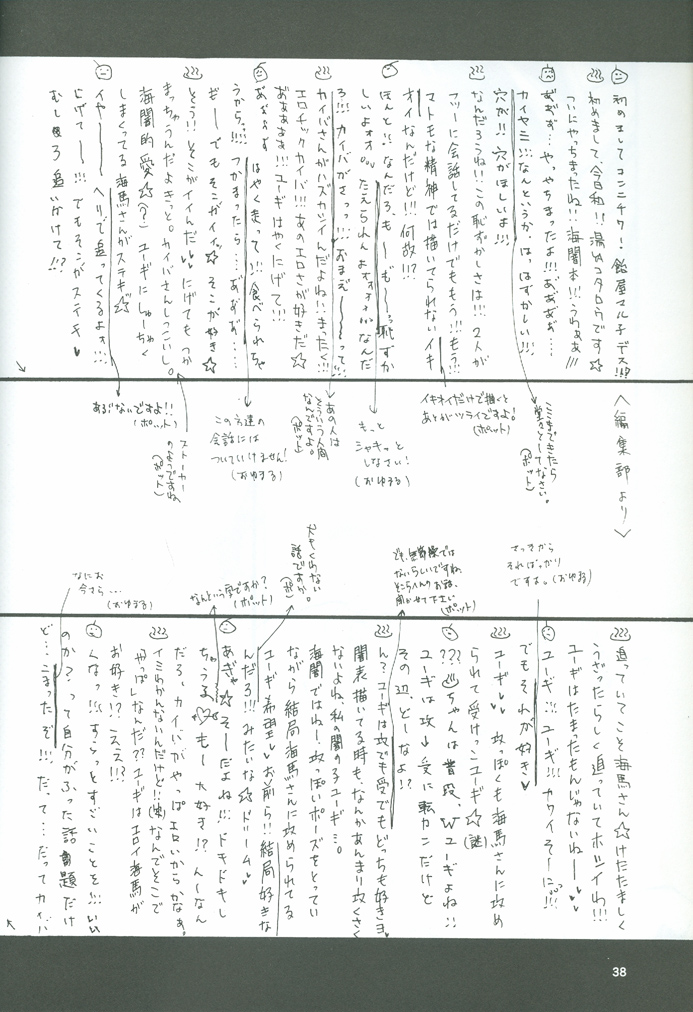 初めましてコンニチワ！飴屋マルチデス!!!?
初めまして、今日和!! 湯山コタロウです☆
ついにやっちまったね!!! 海闇本!!! うわぁぁ!!!
あ゛あ゛あ゛… やっやちまったよ!!! あ゛あ゛あ゛あ゛…
カイヤミ!!! なんというか、はっはずかしい!!!
穴が!! 穴がほしいよ!!!
なんだろうね!! この恥ずかしさは!!! 2人が
フツーに会話してるだけでももう!!! もう!!!
マトモな精神では描いてられないイキ
オイなんだけど!!! 何故!!!?
ほんと!! なんだろ、もーもー〜っ恥ずか
しいよォォ°°° たえられんよォォォ なんだ
ろ!!! カイバがさっっ!!! おまえーーって!!!
カイバさんがハズカシイんだよね!! まったく!!!
エロチックカイバ!!! あのエロさが好きだ☆
あぁあぁぁ!!! ユーギはやくにげて!!!
あ゛あ゛あ゛あ゛ はやく走って!!! 食べられちゃ
うから…!!! つかまったら… あ゛あ゛あ゛…
ぎーでもそこがイイ☆ そこが好き☆
とう!! そこがイイんだ♥♥ にげてもつか
まっちゃうんだよきっと。カイバさんしつこいし。
海闇的愛☆(?) ユーギにしゅーちゃく
しまくってる海馬さんがステキ☆
イヤーーヘリで追ってくるよォ!!!
にげてー!!! でもそこがステキ♥
むしろ追いかけて!!?
〈編集部より〉
ここまできたら
堂々としてなさい。
(ポット)
イキオイだけで描くと
あとがツライですよ!
(ポット)
もっと
シャキっと
しなさい!
(おゆまる)
あの人は
そういう人間
なんですよ。
(ポット)
この方達の
会話には
ついていけません!
(おゆまる)
ストーカーの
ようですね
(ポット)
あぶないですよ!!
(ポット)
さっきから
そればっかり
ですよ。(おゆまる)
(ポット)
なんという字ですか?
(ポット)
なにお
今さら…
(おゆまる)
追っていてこそ海馬さん☆けたたましく
うざったらしく追っていてホシイわ!!!
ユーギはたまったもんじゃないねー♥♥
ユーギ!!! ユーギ!!! カワイそーにっっ!!!
でもそれが好き♥
ユーギ♥♥ 攻っぽくも海馬さんに攻め
られて受けっこユーギ☆(謎)
???♨ちゃんは普段、Wユーギよね!!
ユーギは攻→受に転カンだけど
その辺、どーなよ!?
ん? ユーギは攻でも受でもどっちも好きヨ♥
闇表描いてる時も、なんかあんまり攻くさく
ないよね、私の闇の子ユーギ…。
海闇ではねー、攻っぽいポーズをとってい
ながら結局海馬さんに攻められてる
ユーギ希望♥お前ら!! 結局好きな
んだろ!!! みたいな☆ドリーム♥
あぎゃ☆そーだよね!!! ドキドキし
ちゃうる もー大好き!? んーなん
だろ、カイバがやっぱエロいからかなぁ。
イミわかんないんだけど!!(笑) なんでそこで
やっぱ」なんだ?? ユーギはエロイ海馬が
お好き!? ええ!!?
くなっ!!! すらっとすごいことを!!! いい
のか? って自分がふった話題だけ
ど…こまったぞ!!! だって…だってカイバ
38